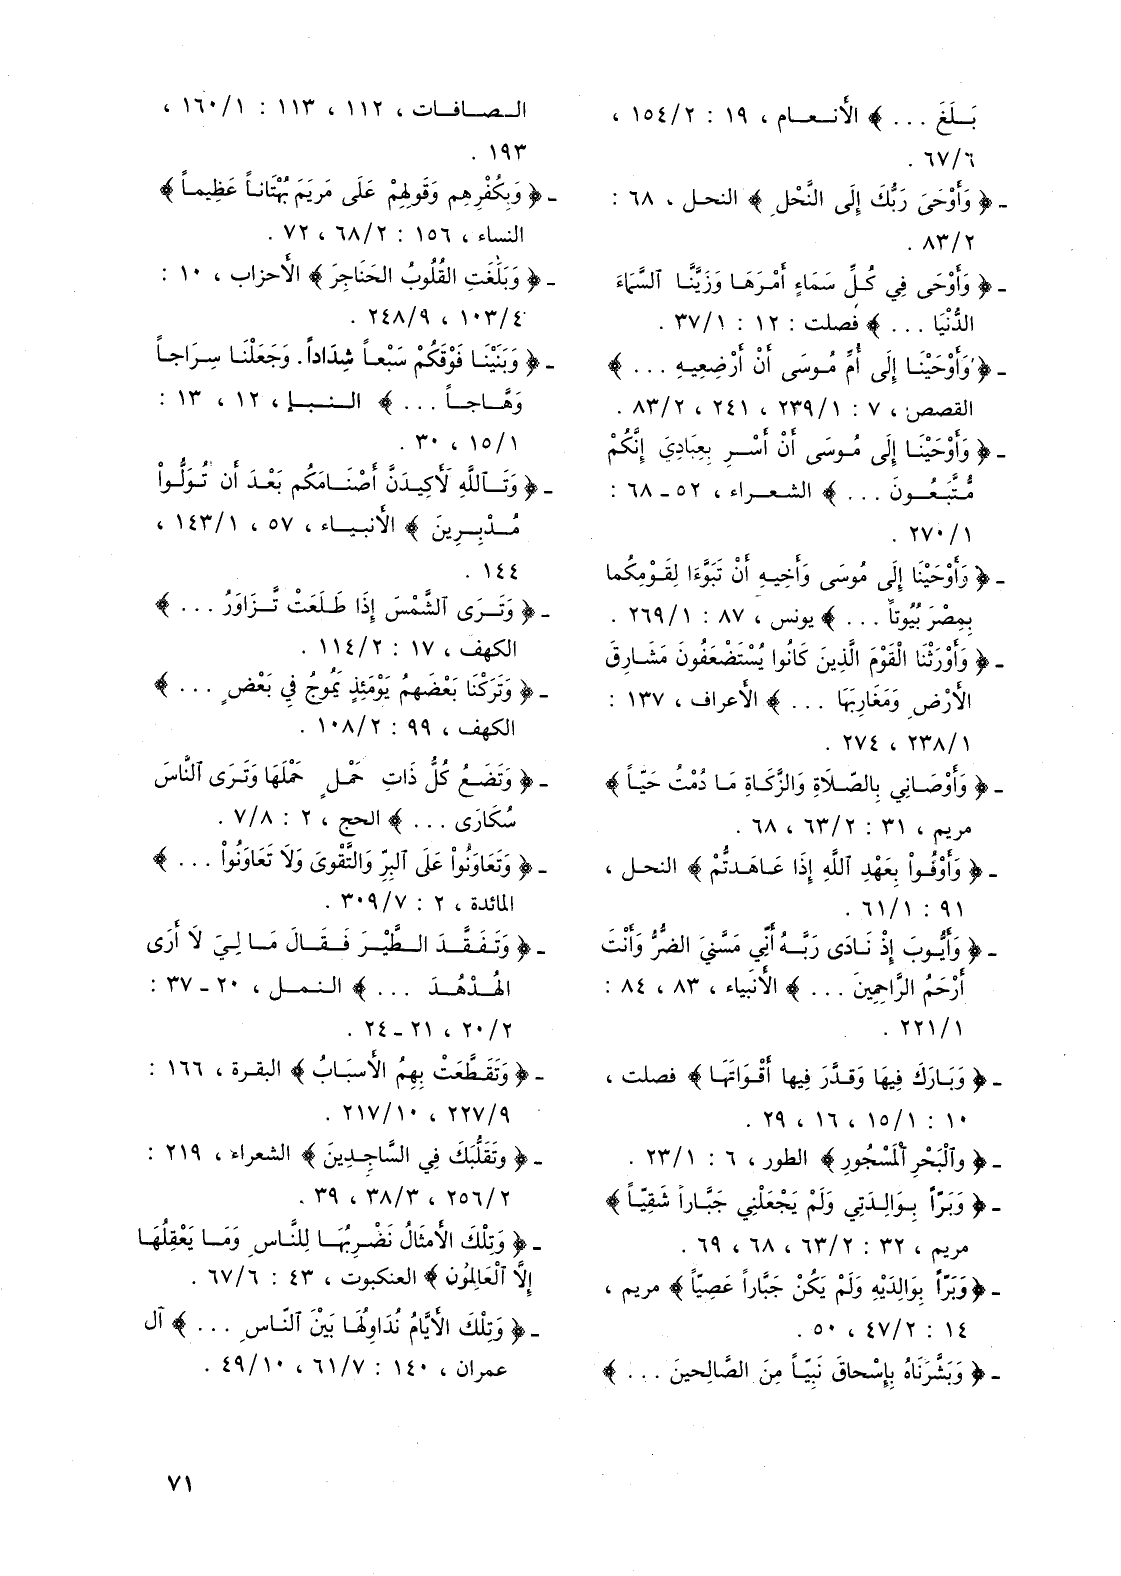 بَلَغَ ... ﴾ الأَنعام ، ١٩ : ١٥٤/٢ ،
٦٧/٦ .
ـ ﴿ وَأَوْحَىَ رَبُّكَ إِلَى النَّحْلِ ﴾ النحل ، ٦٨ :
٨٣/٢ .
ـ ﴿ وَأَوْحَى فِي كُلِّ سَمَاءٍ أَمْرَهَا وَزَيَّنَّا ٱلسَّمَاءَ
الدُّنْيَا ... ﴾ فصلت : ١٢ : ٣٧/١ .
ـ ﴿ وَأَوْحَيْنَا إِلَى أُمِّ مُوسَى أَنْ أَرْضِعِيهِ ... ﴾
القصص ، ٧ : ٢٣٩/١ ، ٢٤١ ، ٨٣/٢ .
ـ ﴿ وَأَوْحَيْنَا إِلَى مُوسَى أَنْ أَسْرِ بِعِبَادِيَ إِنَّكُمْ
مُّتَّبَعُونَ ... ﴾ الشعراء ، ٥٢ـ٦٨ :
٢٧٠/١ .
ـ ﴿ وَأَوْحَيْنَا إِلَى مُوسَى وَأَخِيهِ أَنْ تَبَوَّءَا لِقَوْمِكُما
بِمِصْرَ بُيُوتاً ... ﴾ يونس ، ٨٧ : ٢٦٩/١ .
ـ ﴿ وَأَوْرَثْنَا الْقَوْمَ الَّذِينَ كَانُوا يُسْتَضْعَفُونَ مَشَارِقَ
الأَرْضِ وَمَغَارِبَهَا ... ﴾ الأعراف ، ١٣٧ :
٢٣٨/١ ، ٢٧٤ .
ـ ﴿ وَأَوْصَانِي بِالصَّلَاةِ وَالزَّكَاةِ مَا دُمْتُ حَيّاً ﴾
مريم ، ٣١ : ٦٣/٢ ، ٦٨ .
ـ ﴿ وَأَوْفُواْ بِعَهْدِ ٱللَّهِ إِذَا عَاهَدتُّمْ ﴾ النحل ،
٩١ : ٦١/١ .
ـ ﴿ وَأَيُّوبَ إِذْ نَادَى رَبَّهُ أَنِّي مَسَّنِيَ الضُّرُّ وَأَنْتَ
أَرْحَمُ الرَّاحِمِينَ ... ﴾ الأنبياء ، ٨٣ ، ٨٤ :
٢٢١/١ .
ـ ﴿ وَبَارَكَ فِيهَا وَقَدَّرَ فِيها أَقْوَاتَهَا ﴾ فصلت ،
١٠ : ١٥/١ ، ١٦ ، ٢٩ .
ـ ﴿ وٱلْبَحْرِ ٱلْمَسْجُورِ ﴾ الطور ، ٦ : ٢٣/١ .
ـ ﴿ وَبَرّاً بِوَالِدَتِي وَلَمْ يَجْعَلْنِي جَبَّاراً شَقِيّاً ﴾
مريم ، ٣٢ : ٦٣/٢ ، ٦٨ ، ٦٩ .
ـ ﴿ وَبَرّاً بِوَالِدَيْهِ وَلَمْ يَكُنْ جَبَّاراً عَصِيّاً ﴾ مريم ،
١٤ : ٤٧/٢ ، ٥٠ .
ـ ﴿ وَبَشَّرْنَاهُ بِإِسْحاقَ نَبِيّاً مِنَ الصَّالِحينَ ... ﴾
الصافات ، ١١٢ ، ١١٣ : ١٦٠/١ ،
١٩٣ .
ـ ﴿ وَبِكُفْرِهِم وَقَولِهِمْ عَلَى مَريَمَ بُهْتَاناً عَظِيماً ﴾
النساء ، ١٥٦ : ٦٨/٢ ، ٧٢ .
ـ ﴿ وَبَلَغَتِ القُلُوبُ الحَنَاجِرَ ﴾ الأحزاب ، ١٠ :
١٠٣/٤ ، ٢٤٨/٩ .
ـ ﴿ وَبَنَيْنا فَوْقَكُمْ سَبْعاً شِدَاداً. وَجَعَلْنَا سِرَاجاً
وَهَّاجاً ... ﴾ النبإ ، ١٢ ، ١٣ :
١٥/١ ، ٣٠ .
ـ ﴿ وَتَٱللَّهِ لَأَكِيدَنَّ أَصْنَامَكُم بَعْدَ أَن تُوَلُّواْ
مُدْبِرِينَ ﴾ الأنبياء ، ٥٧ ، ١٤٣/١ ،
١٤٤ .
ـ ﴿ وَتَرَى ٱلشَّمْسَ إِذَا طَلَعَتْ تَّزَاوَرُ ... ﴾
الكهف ، ١٧ : ١١٤/٢ .
ـ ﴿ وَتَرَكْنَا بَعْضَهمُ يَوْمَئِذٍ يَمُوجُ فِي بَعْضٍ ... ﴾
الكهف ، ٩٩ : ١٠٨/٢ .
ـ ﴿ وَتَضَعُ كُلُّ ذَاتِ حَمْلٍ حَمْلَهَا وَتَرَى ٱلنَّاسَ
سُكَارَى ... ﴾ الحج ، ٢ : ٧/٨ .
ـ ﴿ وَتَعَاوَنُواْ عَلَى ٱلبِرِّ وَالتَّقْوىَ وَلاَ تَعَاوَنُواْ ... ﴾
المائدة ، ٢ : ٣٠٩/٧ .
ـ ﴿ وَتَفَقَّدَ الطَّيْرَ فَقَالَ مَا لِيَ لَا أَرَى
الهُدْهُدَ ... ﴾ النمل ، ٢٠ـ٣٧ :
٢٠/٢ ، ٢١ـ٢٤ .
ـ ﴿ وَتَقَطَّعَتْ بِهِمُ الأَسبَابُ ﴾ البقرة ، ١٦٦ :
٢٢٧/٩ ، ٢١٧/١٠ .
ـ ﴿ وتَقَلُّبَكَ فِي السَّاجِدِينَ ﴾ الشعراء ، ٢١٩ :
٢٥٦/٢ ، ٣٨/٣ ، ٣٩ .
ـ ﴿ وَتِلْكَ الأَمثَالُ نَضْرِبُهَا لِلنَّاسِ وَمَا يَعْقِلُهَا
إِلاَّ ٱلْعَالِمُون ﴾ العنكبوت ، ٤٣ : ٦٧/٦ .
ـ ﴿ وَتِلْكَ الأَيَّامُ نُدَاوِلُهَا بَيْنَ ٱلنَّاسِ ... ﴾ آل
عمران ، ١٤٠ : ٦١/٧ ، ٤٩/١٠ .
٧١